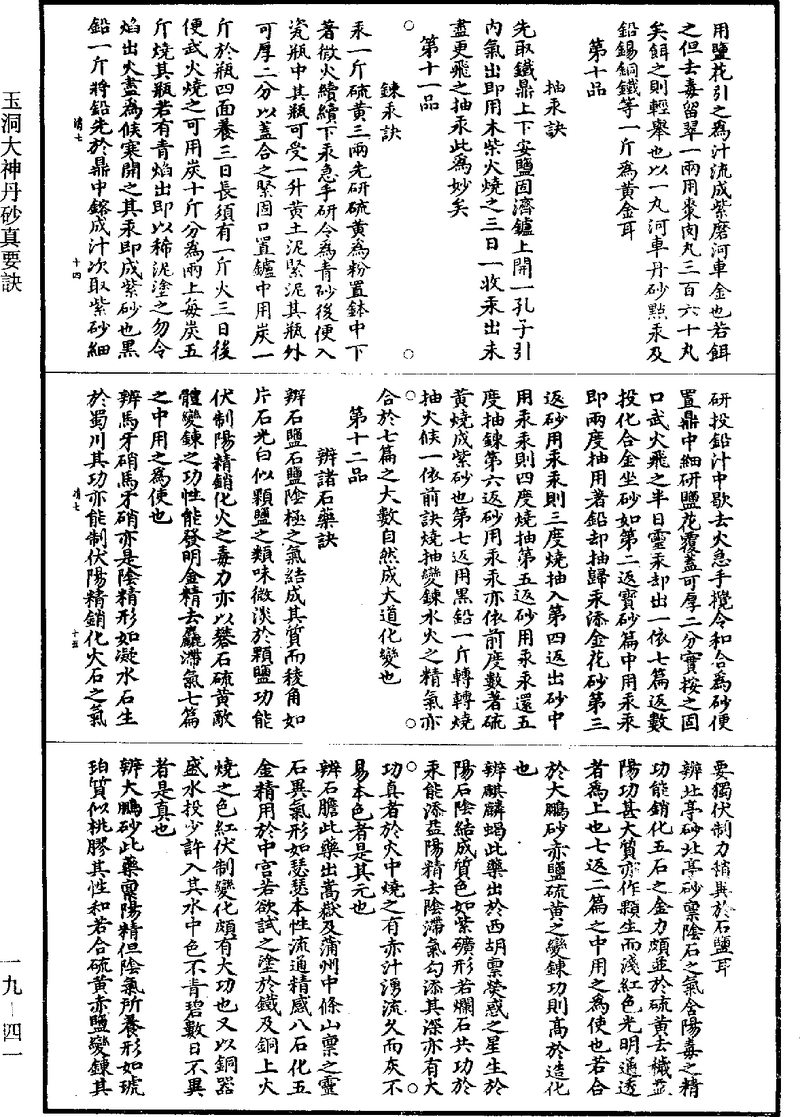 玉洞大神丹砂真要訣
用鹽花引之為汁流成紫磨河車金也若餌
之但去毒留翠一兩用棗肉丸三百六十丸
矣餌之則輕舉也以一丸河車丹砂點汞及
鉛錫銅鐵等一斤為黃金耳
第十品
抽汞訣
先取鐵鼎上下安鹽固濟鑪上開一孔子引
內氣出即用木柴火燒之三日一收汞出未
盡更飛之抽汞此為妙矣
第十一品
鍊汞訣
汞一斤硫黃三兩先研硫黃為粉置鉢中下
著微火續續下汞急手研令為青砂後便入
瓷瓶中其瓶可受一升黃土泥緊泥其瓶外
可厚二分以蓋合之緊固口置鑪中用炭一
斤於瓶四面養三日長須有一斤火三日後
便武火燒之可用炭十斤分為兩上每炭五
斤燒其瓶若有青焰出即以稀泥塗之勿令
焰出火盡為候寒開之其汞即成紫砂也黑
鉛一斤將鉛先於鼎中鎔成汁次取紫砂細
清七
十四
研投鉛汁中歇去火急手攪令和合為砂便
置鼎中細研鹽花覆蓋可厚二分實按之固
口武火飛之半日靈汞却出一依七篇返數
投化合金坐砂如第二返寶砂篇中用汞汞
即兩度抽用著鉛却抽歸汞添金花砂第三
返砂用汞汞則三度燒抽入第四返出砂中
用汞汞則四度燒抽第五返砂用汞汞還五
度抽鍊第六返砂用汞汞亦依前度數著硫
黃燒成紫砂也第七返用黑鉛一斤轉轉燒
抽火候一依前訣燒抽變鍊水火之精氣亦
合於七篇之大數自然成大道化變也
第十二品
辨諸石藥訣
辨石鹽石鹽陰極之氣結成其質而稜角如
片石光白似顆鹽之類味微淡於顆鹽功能
伏制陽精銷化火之毒力亦以礬石硫黃敵
體變鍊之功性能發明金精去麤滯氣七篇
之中用之為使也
辨馬牙硝馬牙硝亦是陰精形如凝水石生
於蜀川其功亦能制伏陽精銷化火石之氣
清七
十五
要獨伏制力稍異於石鹽耳
辨北亭砂北亭砂稟陰石之氣含陽毒之精
功能銷化五石之金力頗並於硫黃去穢益
陽功甚大質亦作顆生而淺紅色光明通透
者為上也七返二篇之中用之為使也若合
於大鵬砂赤鹽硫黃之變鍊功則高於造化
也
辨麒麟蝎此藥出於西胡稟熒惑之星生於
陽石陰結成質色如紫礦形若爛石共功於
汞能添益陽精去陰滯氣勾添其深亦有大
功真者於火中燒之有赤汁湧流久而灰不
易本色者是其元也
辨石膽此藥出嵩嶽及蒲州中條山稟之靈
石異氣形如瑟瑟本性流通精感八石化五
金精用於中宮若欲試之塗於鐵及銅上火
燒之色紅伏制變化頗有大功也又以銅器
盛水投少許入其水中色不青碧數日不異
者是真也
辨大鵬砂此藥稟陽精但陰氣所養形如琥
珀質似桃膠其性和若合硫黃赤鹽變鍊其
一九—四一